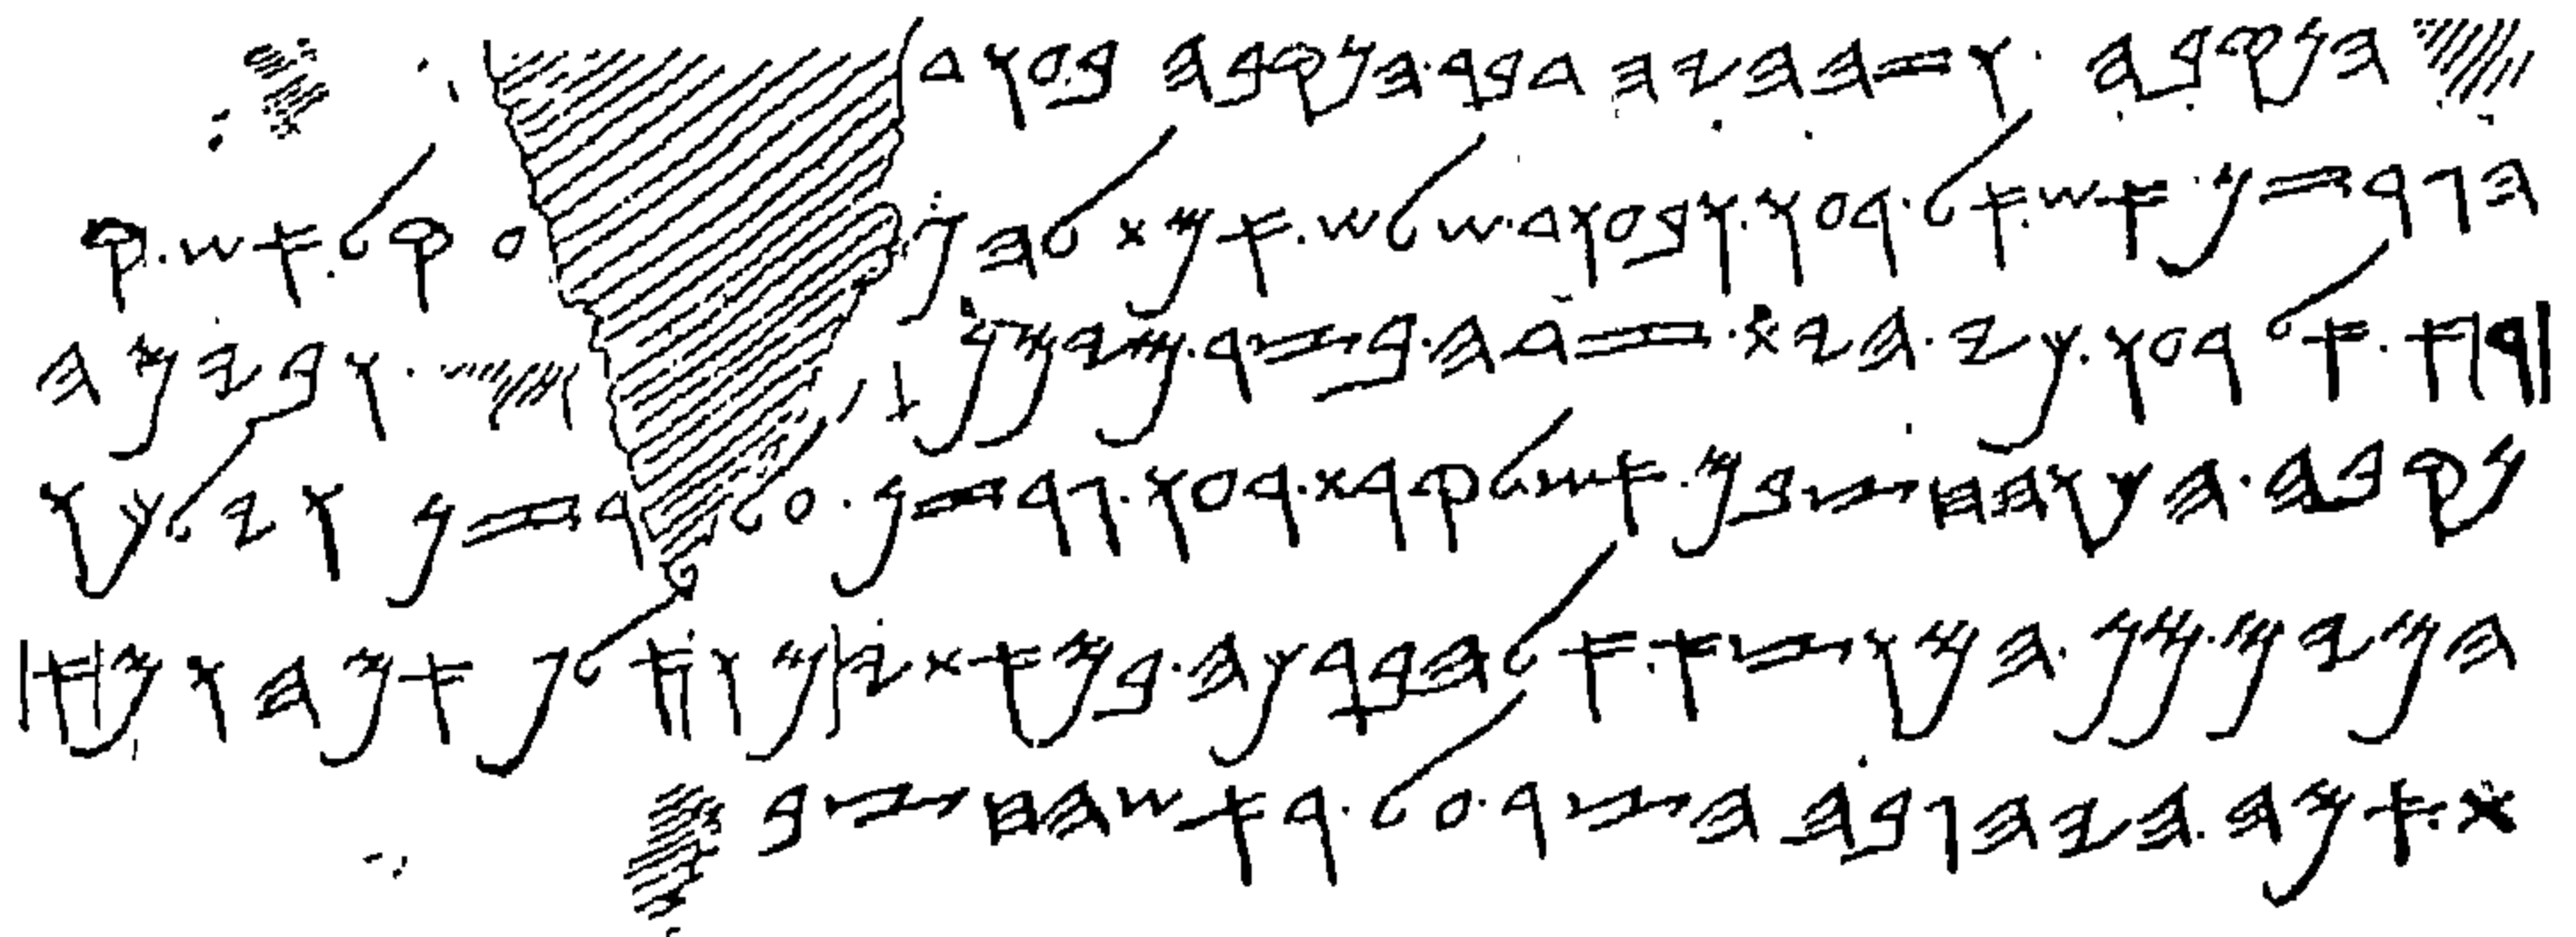 𐤄𐤍𐤒𐤁𐤄 . 𐤅𐤆𐤄 𐤄𐤉𐤄 𐤃𐤁𐤓 . 𐤄𐤍𐤒𐤁𐤄 𐤁𐤏𐤅𐤃
𐤄𐤂𐤓𐤆𐤍 . 𐤀𐤔 . 𐤀𐤋 . 𐤓𐤏𐤅 . 𐤅𐤁𐤏𐤅𐤃 . 𐤔𐤋𐤔 . 𐤀𐤌𐤕 𐤋𐤄𐤍 𐤏 𐤒𐤋 . 𐤀𐤔 . 𐤒
𐤓𐤀 . 𐤀𐤋 𐤓𐤏𐤅 . 𐤊𐤉 . 𐤄𐤉𐤕 . 𐤆𐤃𐤄 . 𐤁𐤑𐤓 . 𐤌𐤉𐤌𐤍 . 𐤅𐤁𐤉𐤌𐤄
𐤍𐤒𐤁𐤄 . 𐤄𐤊𐤅 𐤄𐤇𐤑𐤁𐤌 . 𐤀𐤔 𐤋𐤒𐤓𐤕 . 𐤓𐤏𐤅 . 𐤂𐤓𐤆𐤍 . 𐤏𐤋 𐤓𐤆𐤍 𐤅𐤉𐤋𐤊𐤅
𐤄𐤌𐤉𐤌 . 𐤌𐤍 . 𐤄𐤌𐤅𐤑𐤀 . 𐤀𐤋 𐤄𐤁𐤓𐤊𐤄 . 𐤁𐤌𐤀𐤕𐤉𐤌 𐤅𐤀𐤋𐤐 𐤀𐤌𐤄 𐤅𐤌𐤀
𐤕 . 𐤀𐤌𐤄 . 𐤄𐤉𐤄 𐤂𐤁𐤄 𐤄𐤑𐤓 . 𐤏𐤋 . 𐤓𐤀𐤔 𐤄𐤇𐤑𐤁